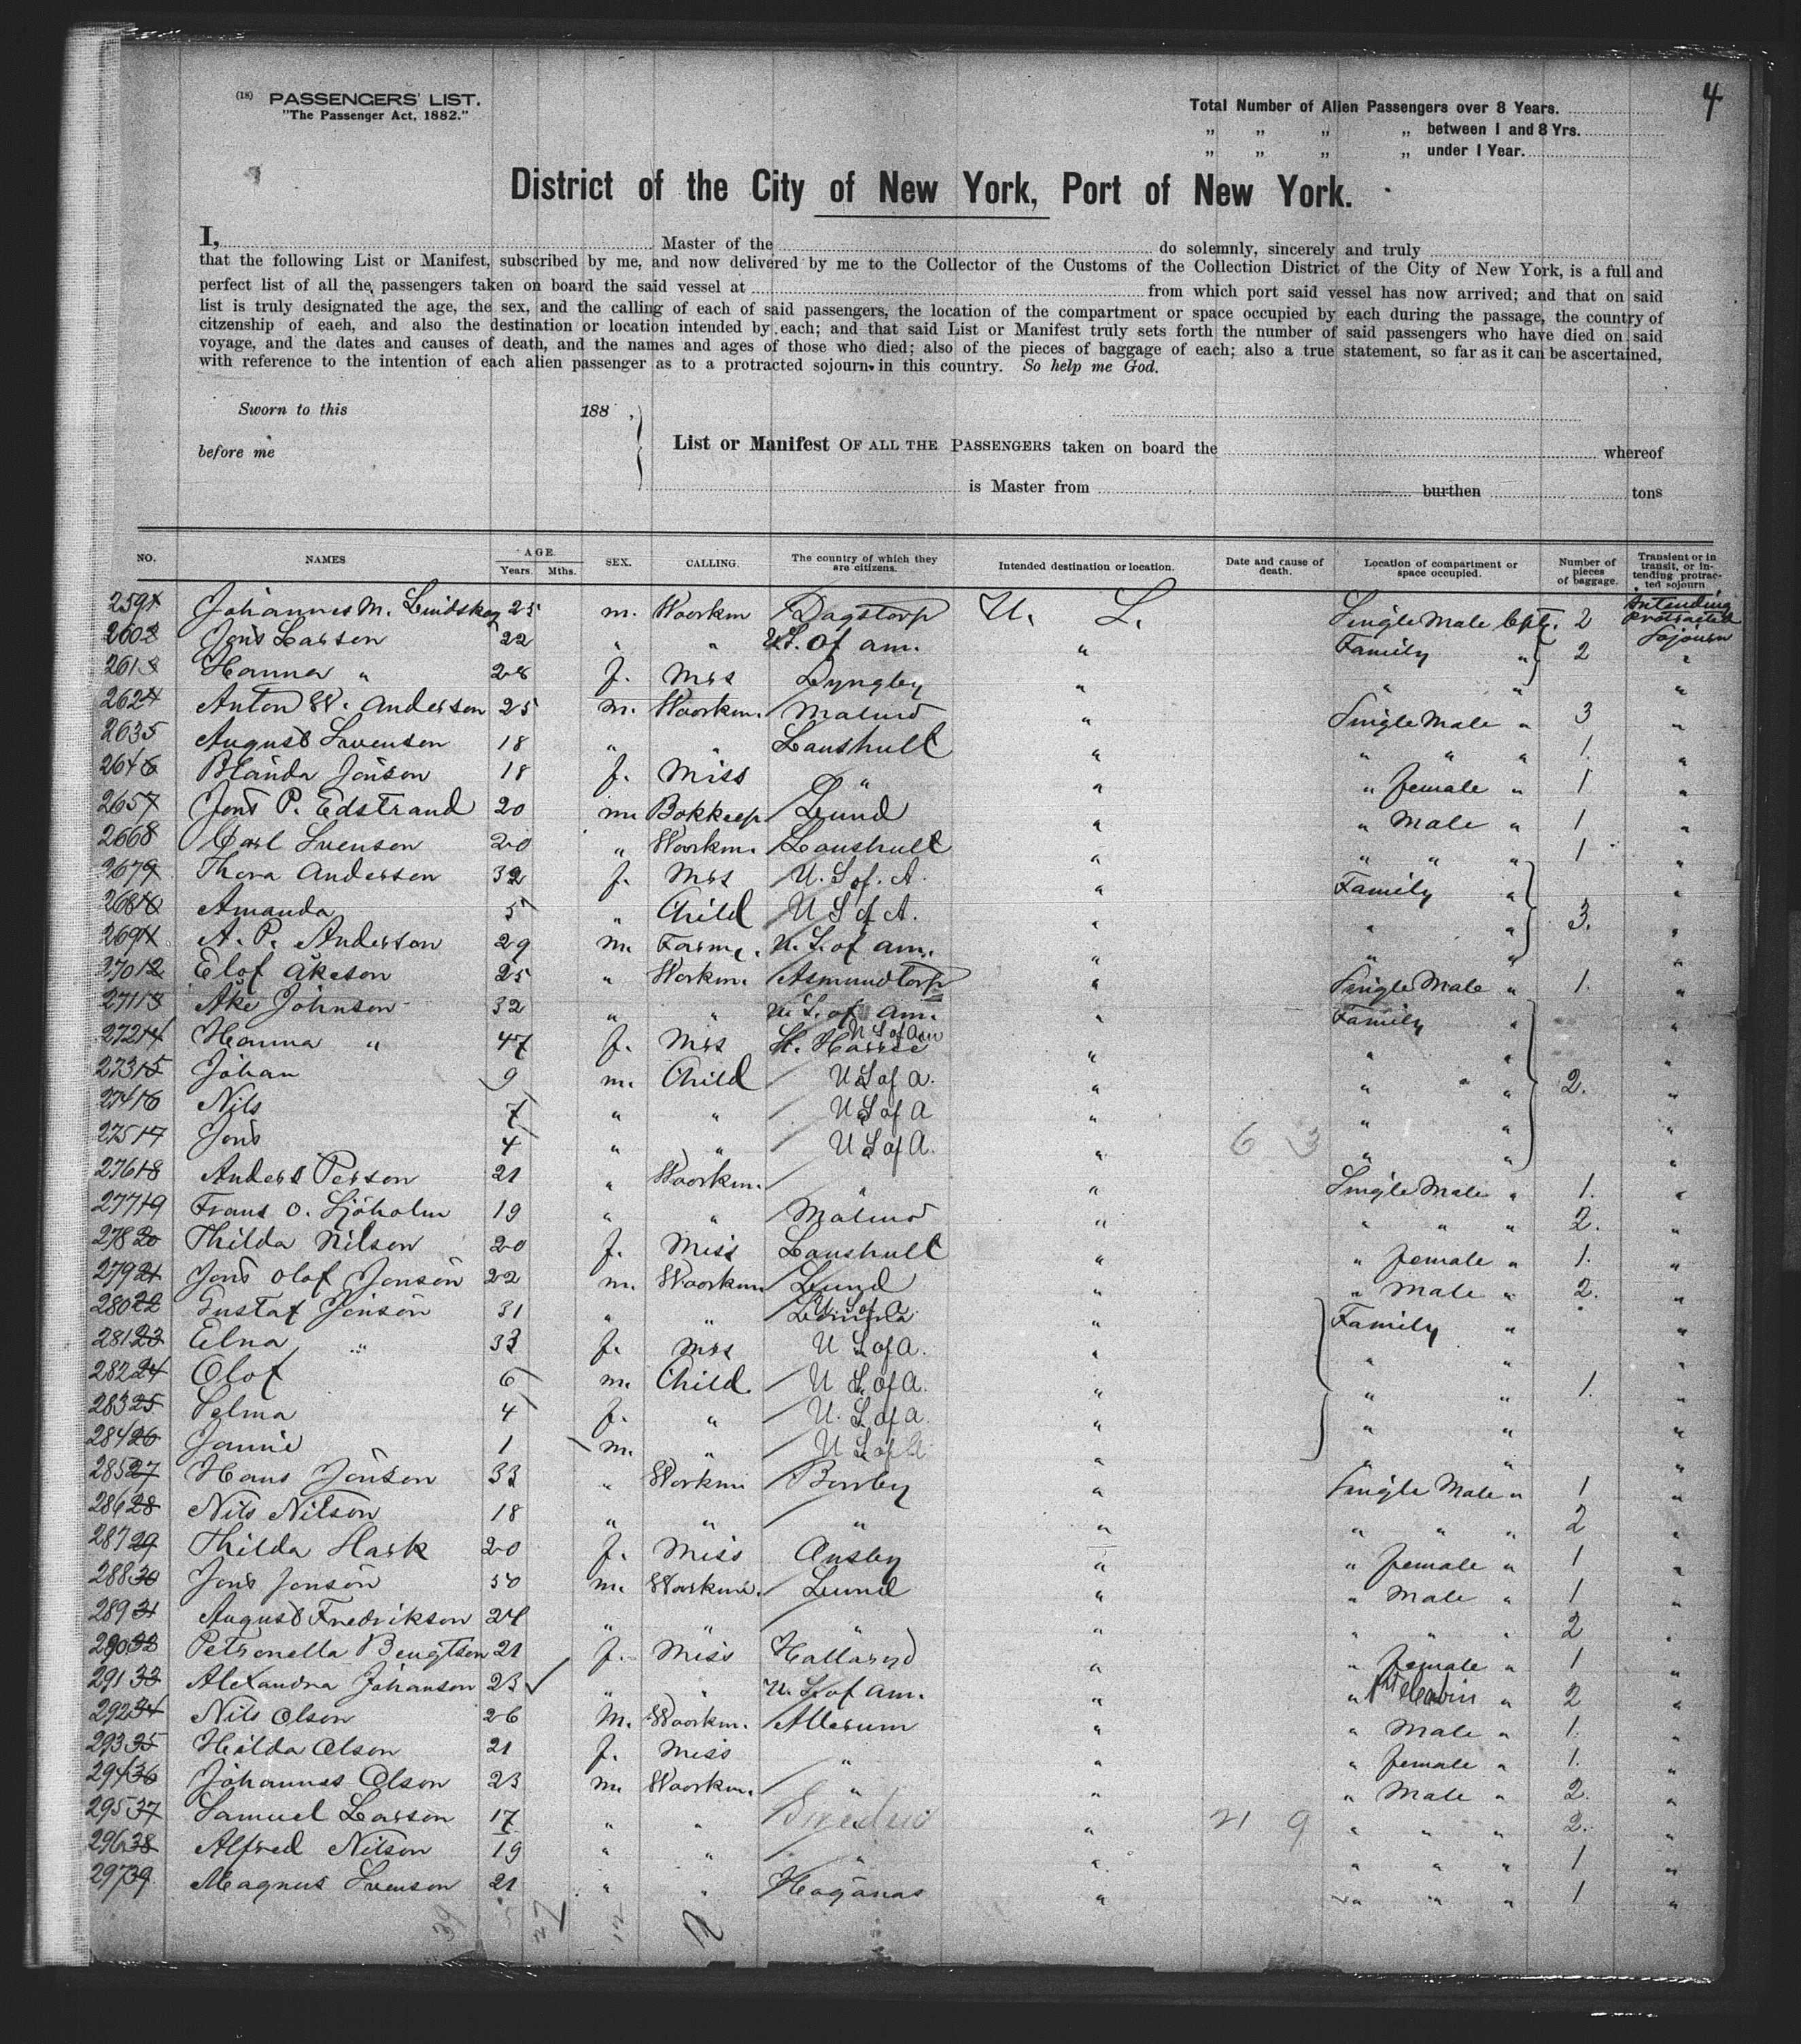 4
(18) PASSENGERS' LIST.
"The Passenger Act, 1882."
Total Number of Alien Passengers over 8 Years.
„ „ „ „ between 1 and 8 Yrs.
„ „ „ „ under 1 Year.
District of the City of New York, Port of New York.
I, Master of the do solemnly, sincerely and truly
that the following List or Manifest, subscribed by me, and now delivered by me to the Collector of the Customs of the Collection District of the City of New York, is a full and
perfect list of all the passengers taken on board the said vessel at from which port said vessel has now arrived; and that on said
list is truly designated the age, the sex, and the calling of each of said passengers, the location of the compartment or space occupied by each during the passage, the country of
citzenship of eaeh, and also the destination or location intended by each; and that said List or Manifest truly sets forth the number of said passengers who have died on said
voyage, and the dates and causes of death, and the names and ages of those who died; also of the pieces of baggage of each; also a true statement, so far as it can be ascertained,
with reference to the intention of each alien passenger as to a protracted sojourn in this country. So help me God.
Sworn to this 188 ,
before me
List or Manifest OF ALL THE PASSENGERS taken on board the whereof
is Master from burthen tons
NO. NAMES AGE. Years. Mths. SEX. CALLING. The country of which they are citizens. Intended destination or location. Date and cause of death. Location of compartment or space occupied. Number of pieces of baggage. Transient or in transit, or intending protracted sojourn
259 Johannes M. Lindskog 25 m. Woorkm Dagstorp U. S. Single Male Cpt. 2 Intending protracted Sojourn
260 Jöns Larson 22 " " U.S. of am. " Family " 2 "
261 Hanna " 28 f. Mrs Dyngby " " " "
262 Anton W. Anderson 25 m. Woorkm. Malmö " Single Male " 3 "
263 August Svenson 18 " " Lanshult " " " " 1. "
264 Blända Jönson 18 f. Miss " " " female " 1 "
265 Jöns P. Edstrand 20 m. Bokkeep. Lund " " Male " 1 "
266 Carl Svenson 20 " Woorkm. Lanshult " " " " 1 "
267 Thora Anderson 32 f. Mrs U. S. of. A. " Family " "
268 Amanda 5 " Child U S of A. " " " 3. "
269 A. P. Anderson 29 m. Farme. U. S. of am. " " " "
270 Elof Åkeson 25 " Workm. Asmundtorp " Single Male " 1. "
271 Åke Johnson 32 " " U. S. of am. " Family " "
272 Hanna " 47 f. Mrs U S of Am " " " "
273 Johan 9 m. Child U S of a. " " " 2. "
274 Nils 7 " " U S of A " " " "
275 Jöns 4 " " U S of A. " 6 3 " " "
276 Anders Person 21 " Woorkm. " " Single Male " 1. "
277 Frans O. Sjöholm 19 " " Malmö " " " " 2. "
278 Thilda Nilson 20 f. Miss Lanshult " " female " 1. "
279 Jöns Olof Jönson 22 m. Woorkm Lund " " Male " 2. "
280 Gustaf Jönson 31 " " U. S. of a. " Family " "
281 Elna " 33 f. Mrs U S. of a. " " " "
282 Olof 6 m. Child. U S. of a. " " " 1. "
283 Selma 4 f. " U. S. of a. " " " "
284 Jannie 1 m. " U S. of a " " " "
285 Hans Jönson 33 " Workm Borrby " Single Male " 1 "
286 Nils Nilson 18 " " " " " " " 2 "
287 Thilda Hark 20 f. Miss Ausby " " female " 1 "
288 Jöns Jönson 50 m. Workm. Lund " " Male " 1 "
289 August Fredrikson 24 " " " " " " " 2 "
290 Petronella Bengtson 21 f. Miss Hallaryd " " female " 1 "
291 Alexandra Johanson 23 " " U. S. of am. " " 1st Cabin " 2 "
292 Nils Olson 26 M. Woorkm. Allerum " " Male " 1. "
293 Hilda Olson 21 f. Miss " " " female " 1. "
294 Johannes Olson 23 m. Woorkm. " " " Male " 2. "
295 Samuel Larson 17 " " Sweden " 21 9 " " " 2. "
296 Alfred Nilson 19 " " " " " " " 1 "
297 Magnus Svenson 21 " " Höganas " " " " 1 "